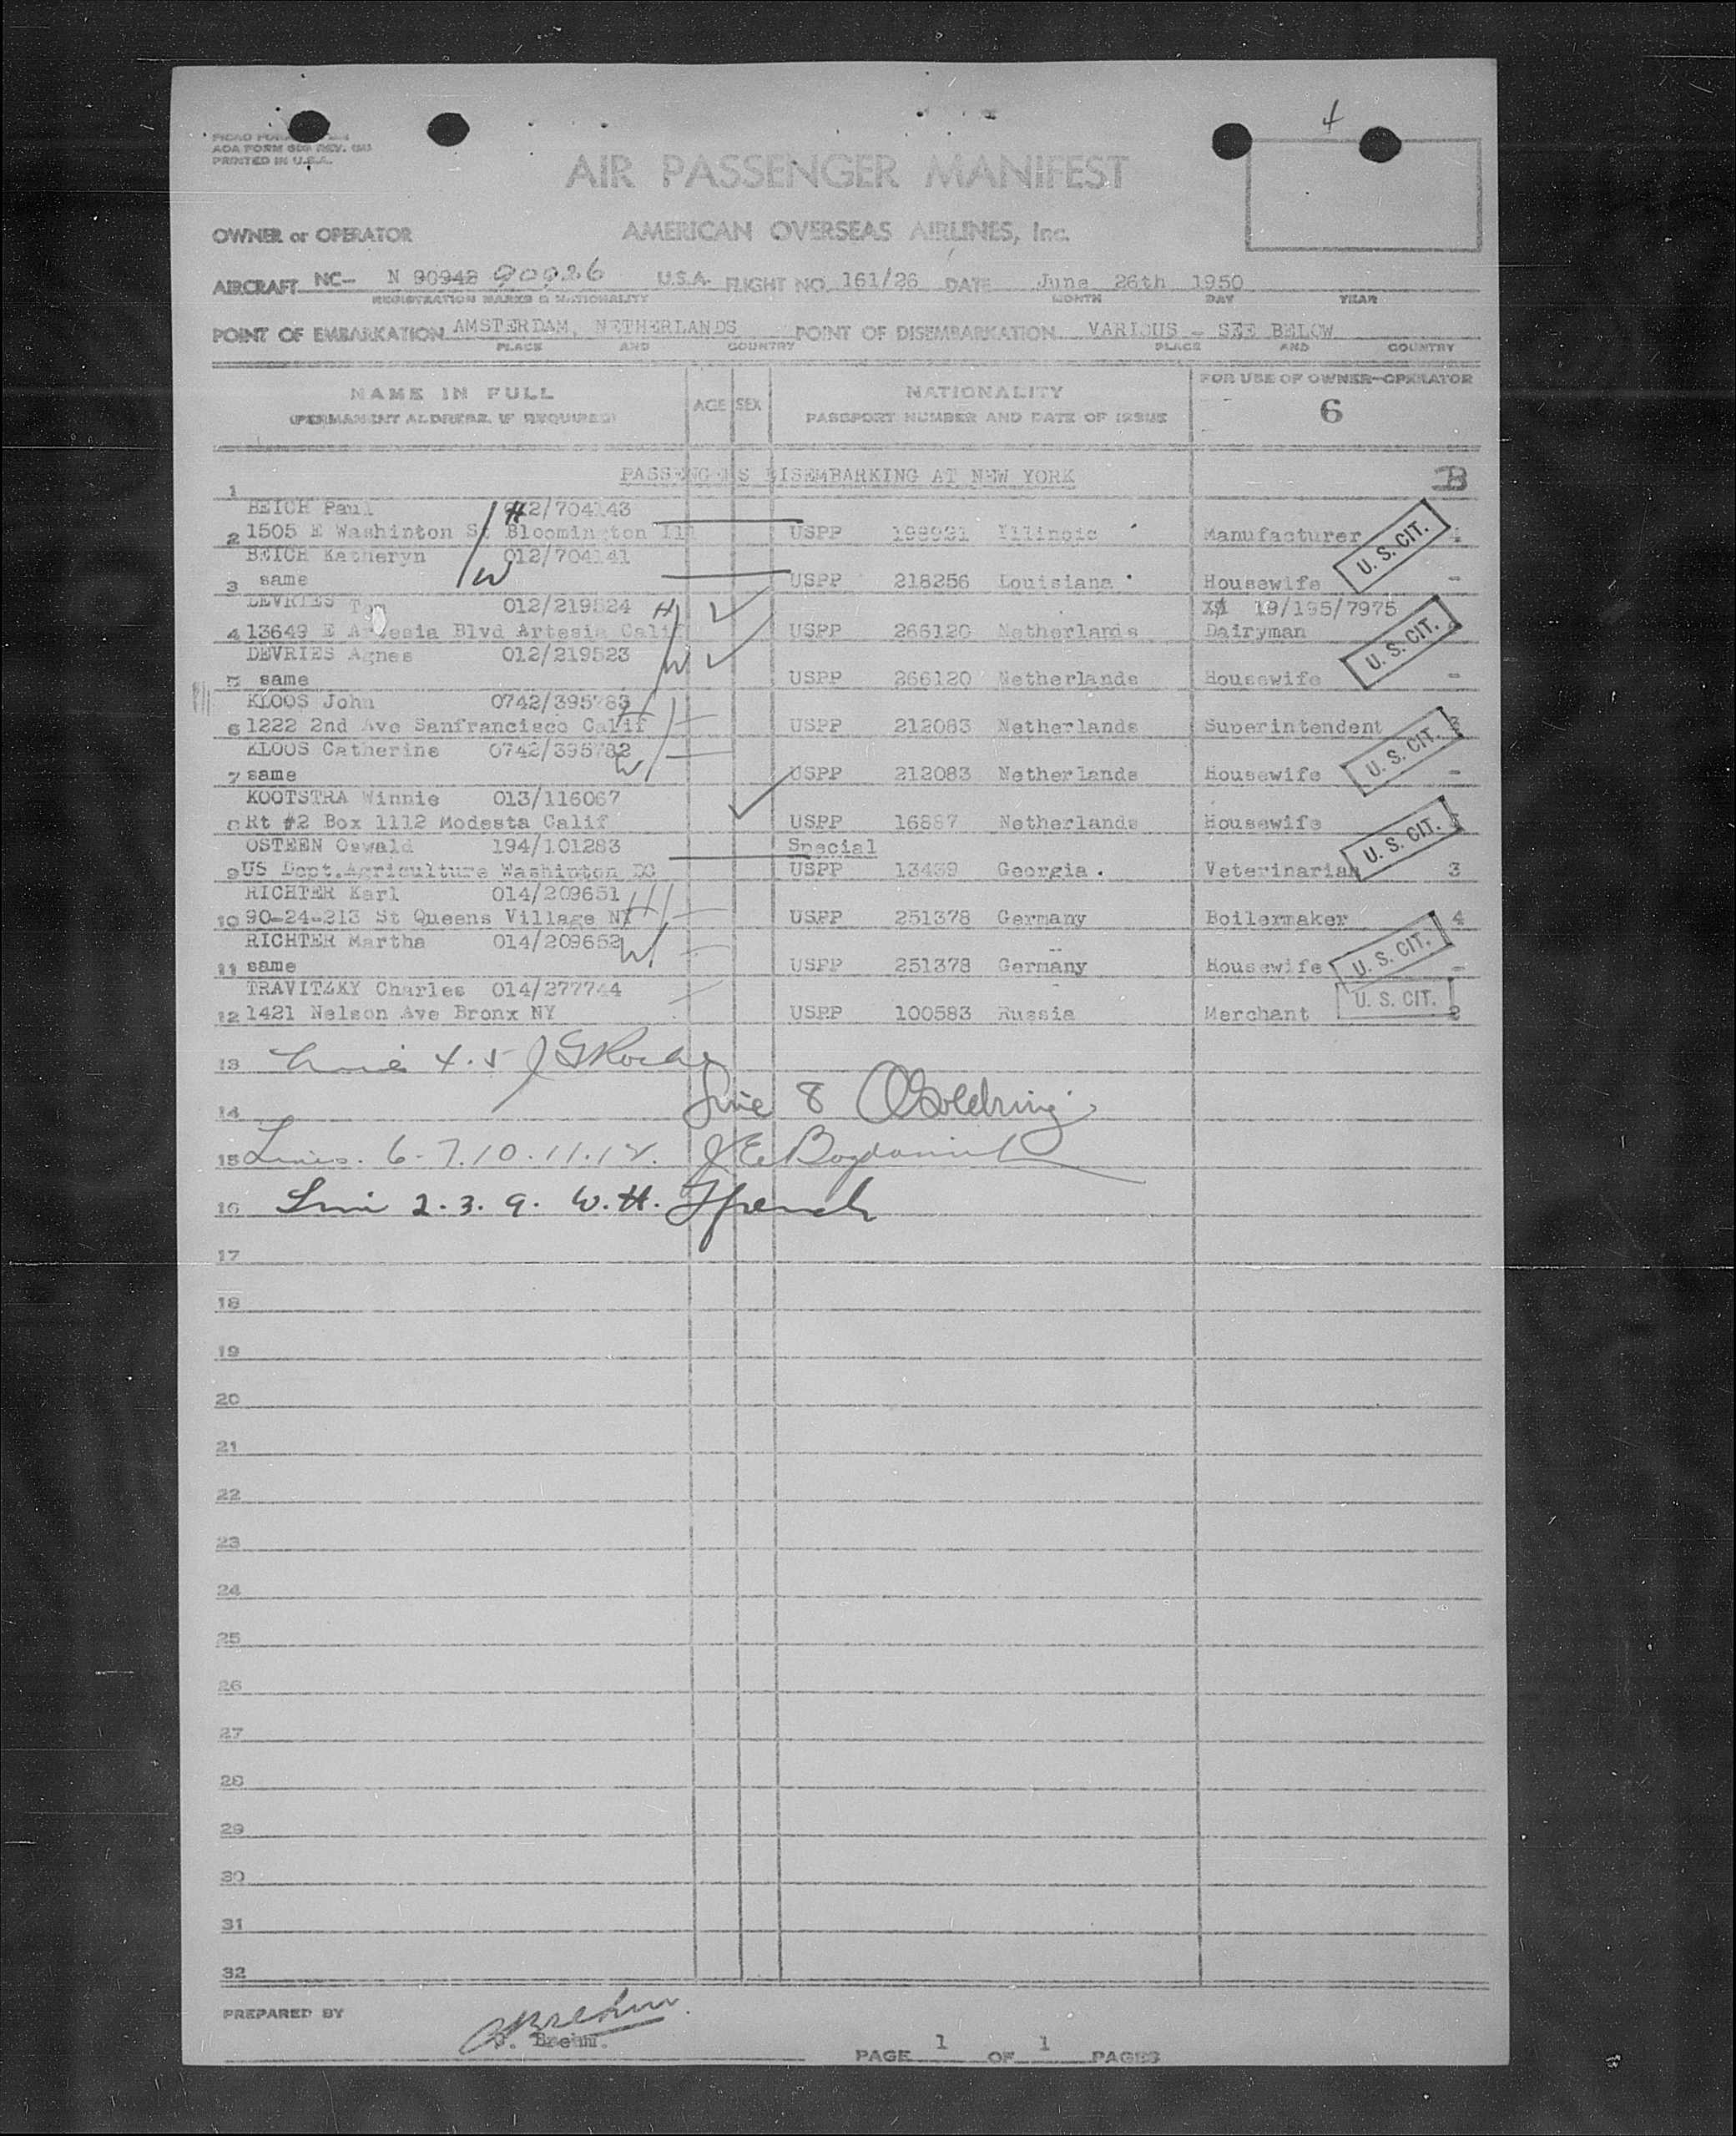 4
AOA FORM REV.
PRINTED IN U.S.A.
AIR PASSENGER MANIFEST
OWNER or OPERATOR AMERICAN OVERSEAS AIRLINES, Inc.
AIRCRAFT NC— N 90942 90926 U.S.A. FLIGHT NO. 161/26 DATE June 26th 1950
REGISTRATION MARKS & NATIONALITY MONTH DAY YEAR
POINT OF EMBARKATION AMSTERDAM, NETHERLANDS POINT OF DISEMBARKATION VARIOUS - SEE BELOW
PLACE AND COUNTRY PLACE AND COUNTRY
NAME IN FULL AGE SEX NATIONALITY FOR USE OF OWNER-OPERATOR
(PERMANENT ADDRESS, IF REQUIRED) PASSPORT NUMBER AND DATE OF ISSUE 6
PASSENGERS DISEMBARKING AT NEW YORK B
1
BEICH Paul 012/704143 H
2 1505 E Washinton St Bloomington Ill USPP Illinois Manufacturer U. S. CIT.
BEICH Katheryn 012/704141
3 same W USPP 218256 Louisiana Housewife -
DEVRIES 012/219524 H 19/195/7975
4 13649 E Artesia Blvd Artesia Calif USPP 266120 Netherlands Dairyman U. S. CIT.
DEVRIES Agnes 012/219523 W
5 same USPP 266120 Netherlands Housewife -
KLOOS John 0742/395783 H
6 1222 2nd Ave Sanfrancisco Calif USPP 212083 Netherlands Superintendent 3 U. S. CIT.
KLOOS Catherine 0742/395782 W
7 same USPP 212083 Netherlands Housewife -
KOOTSTRA Winnie 013/116067
8 Rt #2 Box 1112 Modesta Calif USPP 16887 Netherlands Housewife U. S. CIT.
OSTEEN Oswald 194/101283 Special
9 US Dept.Agriculture Washinton DC USPP 13439 Georgia. Veterinarian 3
RICHTER Karl 014/209651 H
10 90-24-213 St Queens Village NY USPP 251378 Germany Boilermaker 4
RICHTER Martha 014/209652 W
11 same USPP 251378 Germany Housewife U. S. CIT. -
TRAVITZKY Charles 014/277744
12 1421 Nelson Ave Bronx NY USPP 100583 Russia Merchant U. S. CIT. 2
13 Lines 4.5 J G Roche
14 Line 8 Goldring
15 Lines. 6-7.10.11.12. J E
16 Line 2.3.9. W.H. Ffrench
17
18
19
20
21
22
23
24
25
26
27
28
29
30
31
32
PREPARED BY Brehm.
Brehm.
PAGE 1 OF 1 PAGES